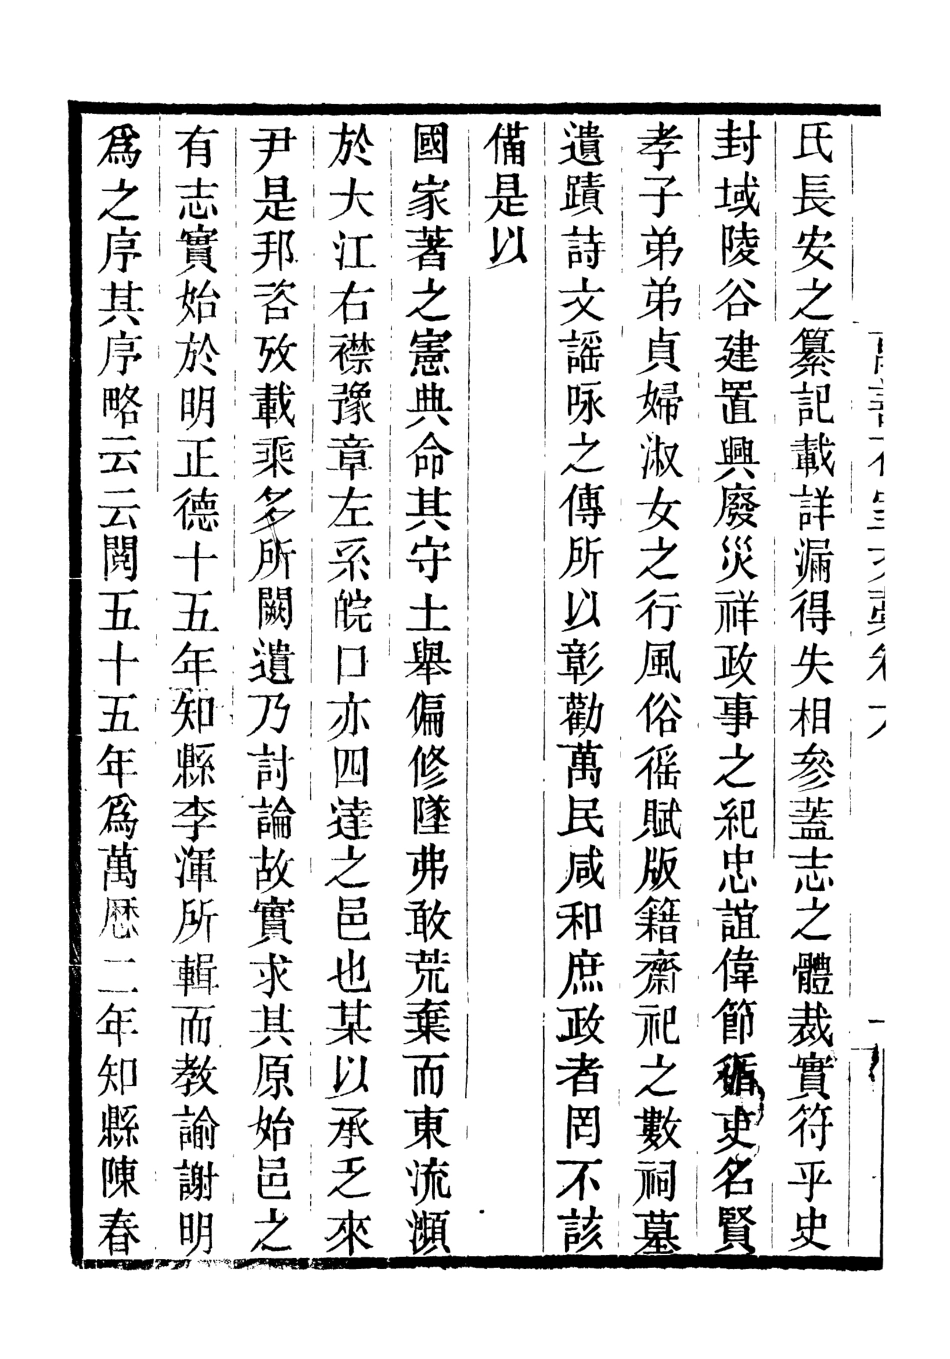 氏長安之纂記載詳漏得失相參蓋志之體裁實符乎史
封域陵谷建置興廢災祥政事之紀忠誼偉節循吏名賢
孝子弟弟貞婦淑女之行風俗徭賦版籍齋祀之數祠墓
遺蹟詩文謡咏之傳所以彰勸萬民咸和庶政者罔不該
備是以
國家著之憲典命其守土舉偏修墜弗敢荒棄而東流瀕
於大江右襟豫章左系皖口亦四達之邑也某以承乏來
尹是邦咨攷載乘多所闕遺乃討論故實求其原始邑之
有志實始於明正德十五年知縣李渾所輯而教諭謝明
爲之序其序略云云閱五十五年爲萬厯二年知縣陳春